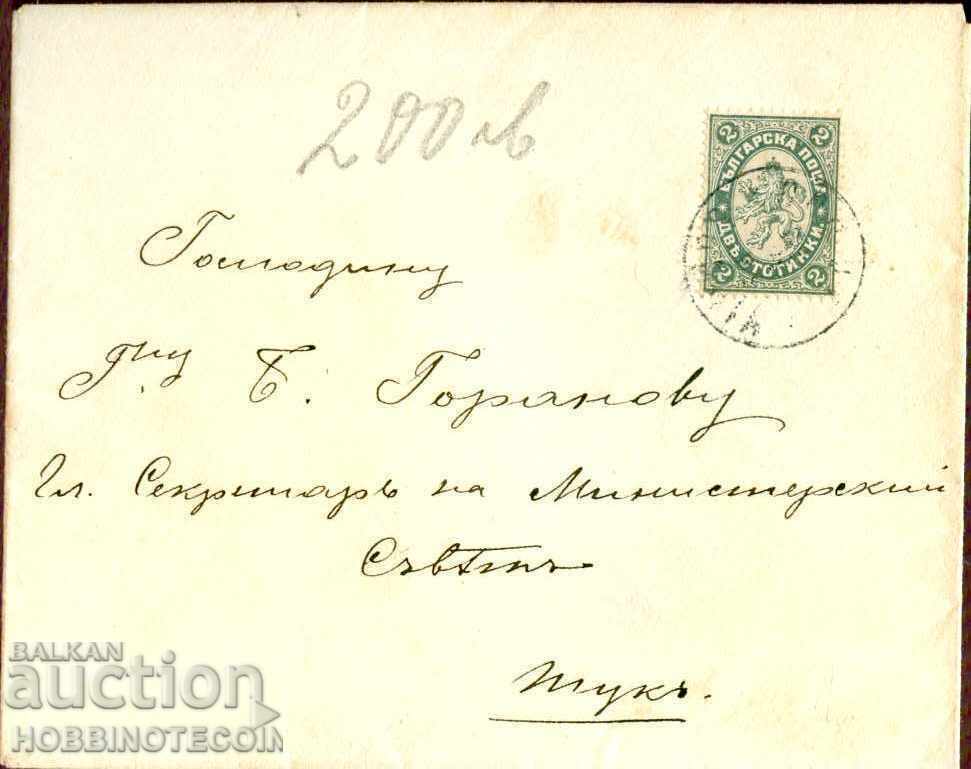 200 лв
2 2
БЪЛГАРСКА ПОЩА
ДВѢ СТОТИНКИ.
2 2
Господину
Г-ну Б. Горанову
Гл. Секретарь на Министерский
Съвѣтъ
Тукъ.
BALKAN
auction
HOBBINOTECOIN